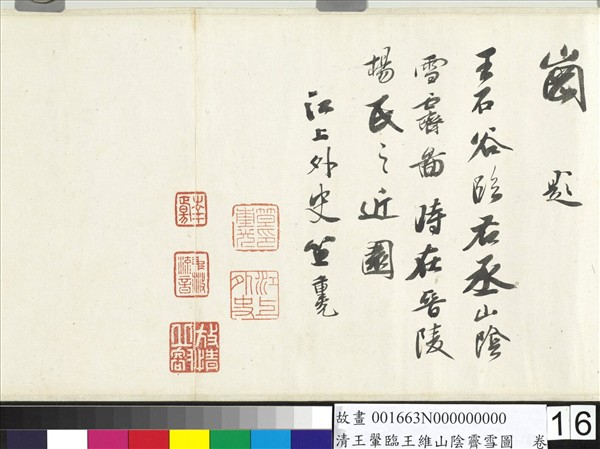 圖 題
王石谷臨右丞山陰
雪霽圖時在晉陵
楊氏之近園
江上外史笪重光
笪印重光
江上外史
故畫 001663N000000000
清王翬臨王維山陰霽雪圖 卷
16